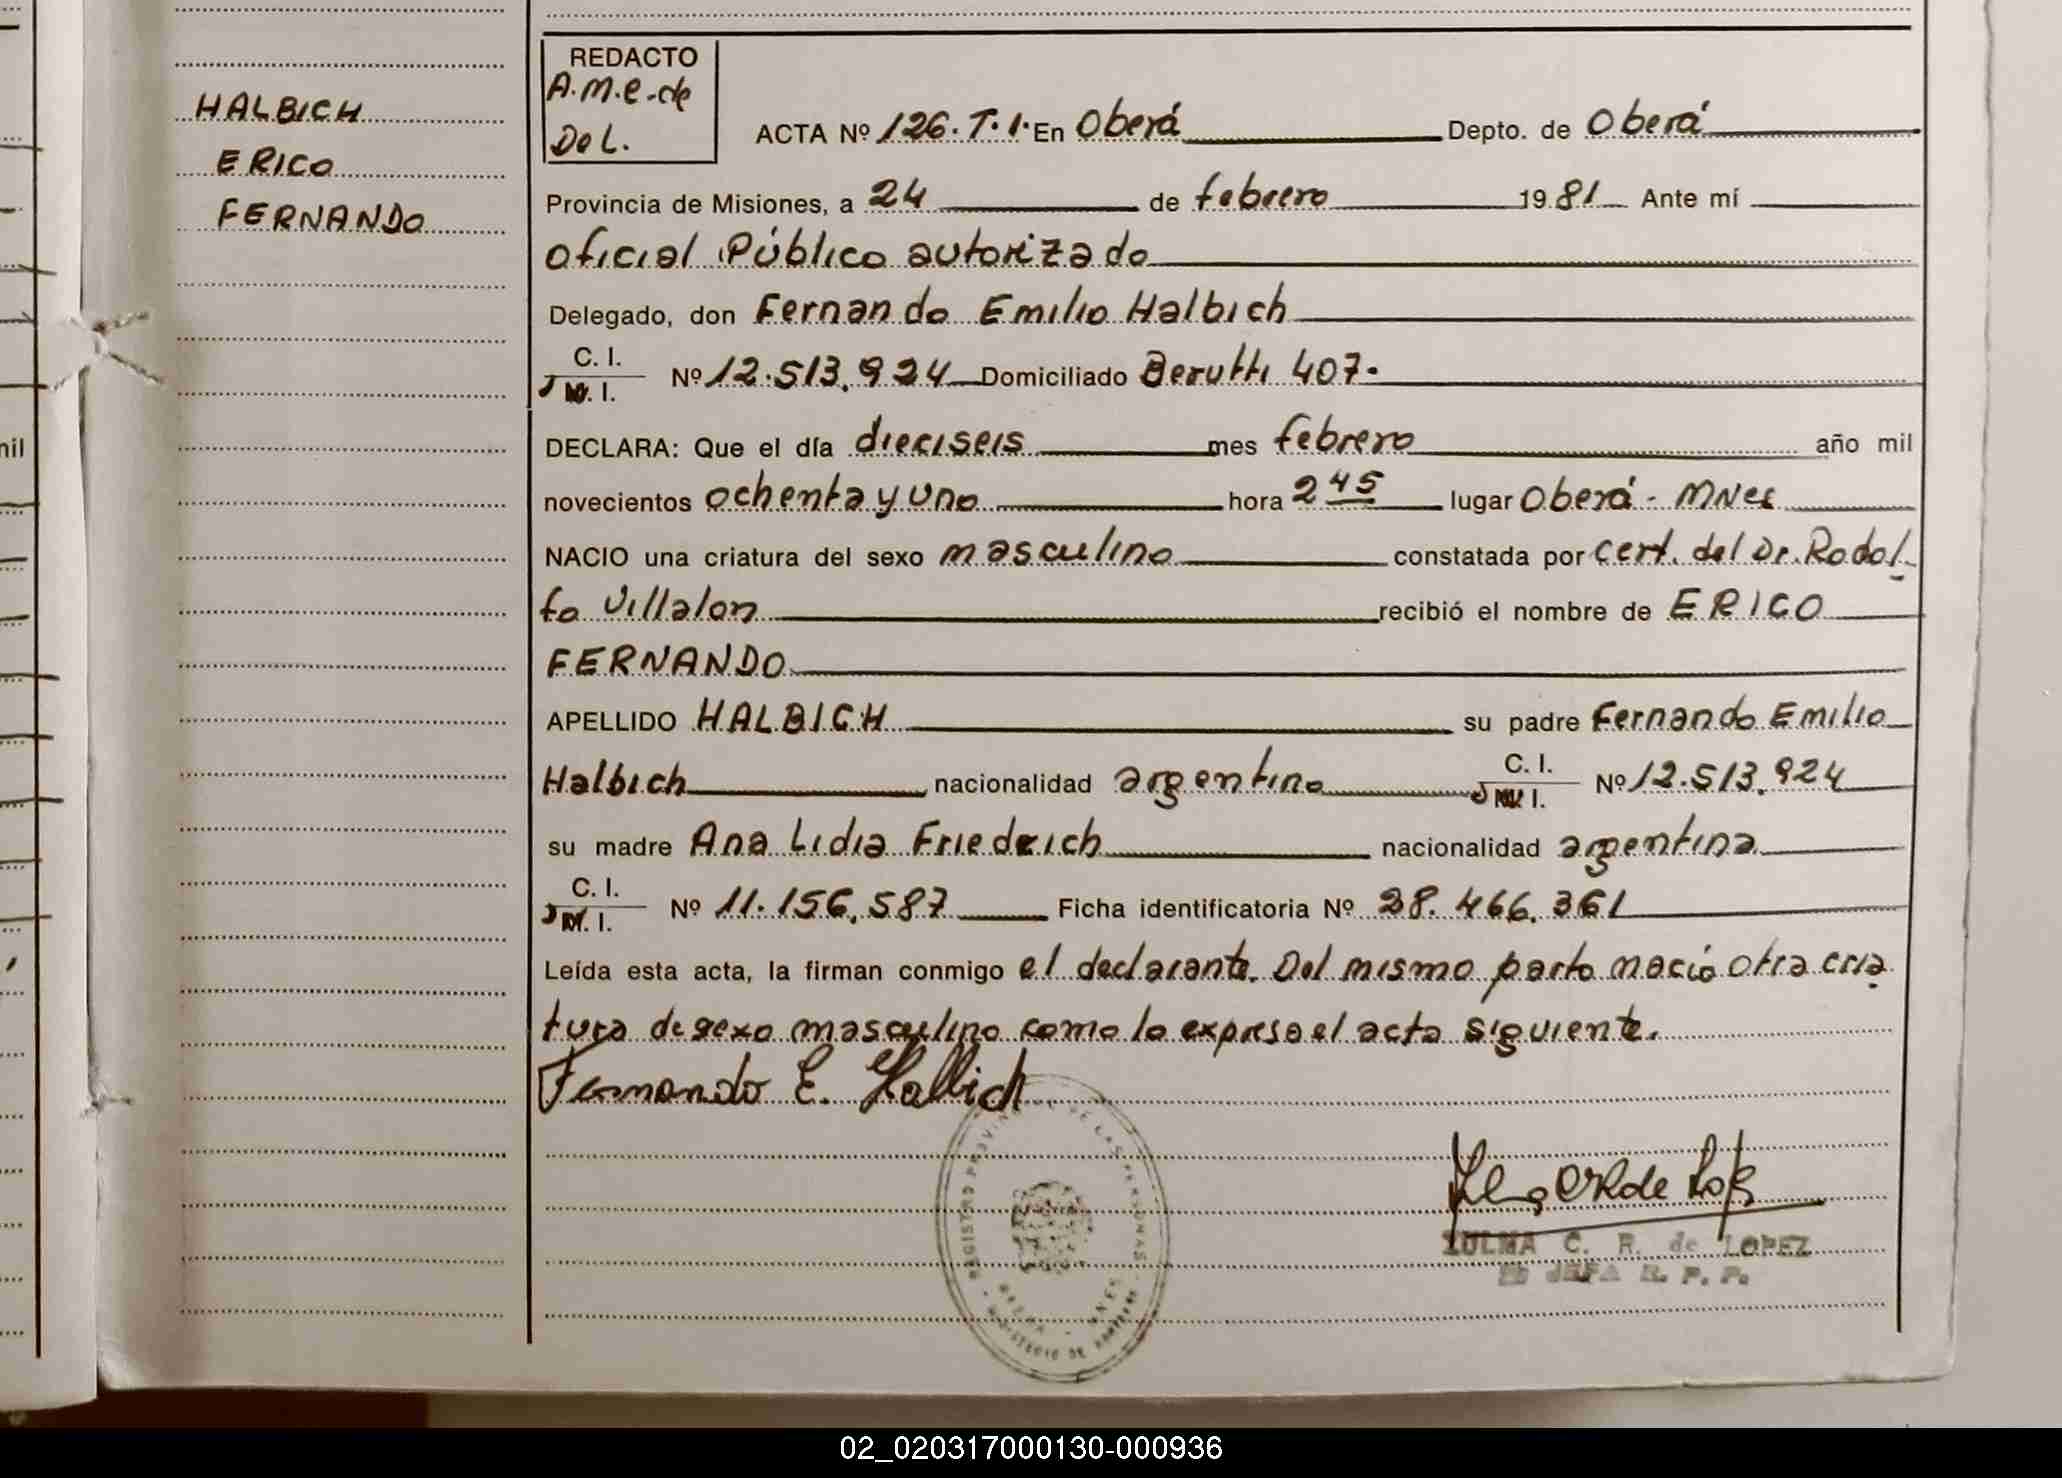 HALBICH
ERICO
FERNANDO
REDACTO
A.M.e.de
De L.
ACTA Nº 126.T.1. En Oberá Depto. de Oberá
Provincia de Misiones, a 24 de febrero 1981 Ante mí
Oficial Público autorizado
Delegado, don Fernando Emilio Halbich
C. I.
I. Nº 12.513.924 Domiciliado Berutti 407.
DECLARA: Que el día dieciseis mes febrero año mil
novecientos ochenta y uno hora 2 45 lugar Oberá - MNes
NACIO una criatura del sexo masculino constatada por cert. del Dr. Rodol-
fo Villalon recibió el nombre de ERICO
FERNANDO
APELLIDO HALBICH su padre Fernando Emilio
Halbich nacionalidad argentino C. I. I. Nº 12.513.924
su madre Ana Lidia Friedrich nacionalidad argentina
C. I.
I. Nº 11.156.587 Ficha identificatoria Nº 28.466.361
Leída esta acta, la firman conmigo el declarante. Del mismo parto nació otra cria
tura de sexo masculino como lo expresa el acta siguiente.
Fernando E. Halbich
REGISTRO PROVINCIAL DE LAS PERSONAS
ZULMA C. R. de LOPEZ
JEFA R. P. P.
nil
02_020317000130-000936